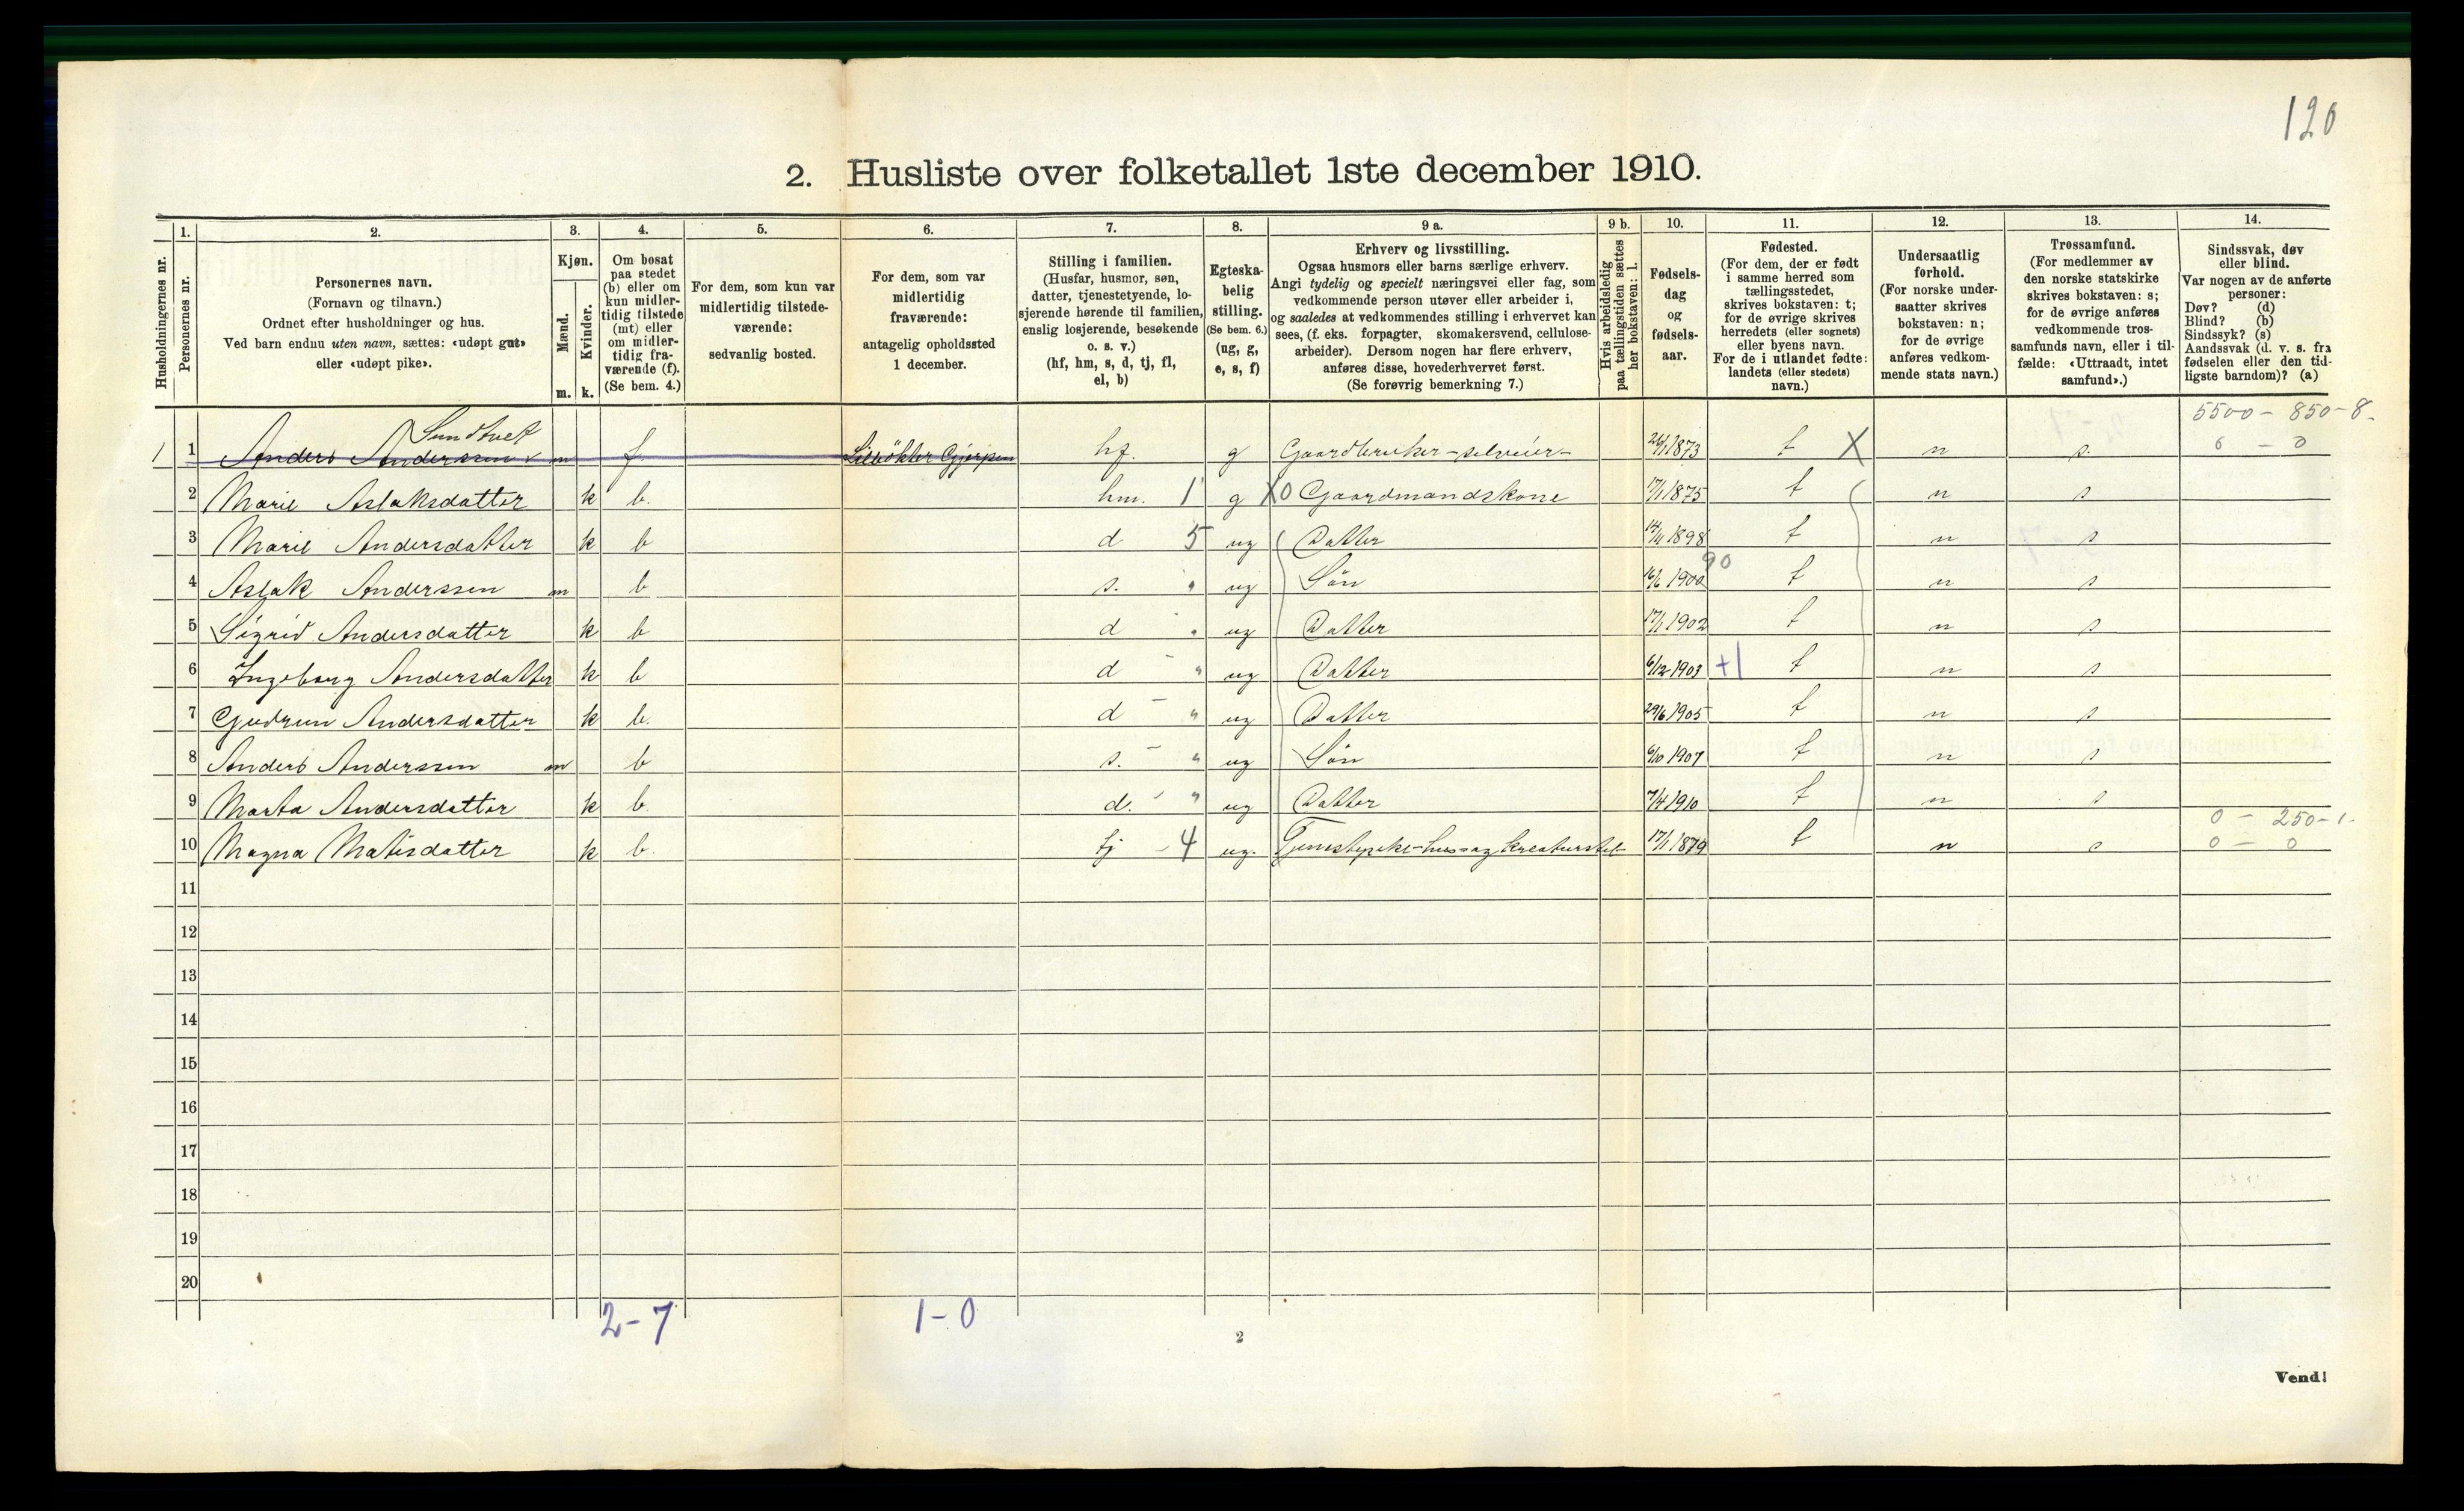 120
2. Husliste over folketallet 1ste december 1910.
Husholdningernes nr.
1. Personernes nr.
2. Personernes navn.
(Fornavn og tilnavn.)
Ordnet efter husholdninger og hus.
Ved barn endnu uten navn, sættes: «udøpt gut»
eller «udøpt pike».
3. Kjøn.
Mænd. m.
Kvinder. k.
4. Om bosat
paa stedet
(b) eller om
kun midler-
tidig tilstede
(mt) eller
om midler-
tidig fra-
værende (f).
(Se bem. 4.)
5. For dem, som kun var
midlertidig tilstede-
værende:
sedvanlig bosted.
6. For dem, som var
midlertidig
fraværende:
antagelig opholdssted
1 december.
7. Stilling i familien.
(Husfar, husmor, søn,
datter, tjenestetyende, lo-
sjerende hørende til familien,
enslig losjerende, besøkende
o. s. v.)
(hf, hm, s, d, tj, fl,
el, b)
8. Egteska-
belig
stilling.
(Se bem. 6.)
(ug, g,
e, s, f)
9 a. Erhverv og livsstilling.
Ogsaa husmors eller barns særlige erhverv.
Angi tydelig og specielt næringsvei eller fag, som
vedkommende person utøver eller arbeider i,
og saaledes at vedkommendes stilling i erhvervet kan
sees, (f. eks. forpagter, skomakersvend, cellulose-
arbeider). Dersom nogen har flere erhverv,
anføres disse, hovederhvervet først.
(Se forøvrig bemerkning 7.)
9 b. Hvis arbeidsledig
paa tællingstiden sættes
her bokstaven: l.
10. Fødsels-
dag
og
fødsels-
aar.
11. Fødested.
(For dem, der er født
i samme herred som
tællingsstedet,
skrives bokstaven: t;
for de øvrige skrives
herredets (eller sognets)
eller byens navn.
For de i utlandet fødte:
landets (eller stedets)
navn.)
12. Undersaatlig
forhold.
(For norske under-
saatter skrives
bokstaven: n;
for de øvrige
anføres vedkom-
mende stats navn.)
13. Trossamfund.
(For medlemmer av
den norske statskirke
skrives bokstaven: s;
for de øvrige anføres
vedkommende tros-
samfunds navn, eller i til-
fælde: «Uttraadt, intet
samfund».)
14. Sindssvak, døv
eller blind.
Var nogen av de anførte
personer:
Døv? (d)
Blind? (b)
Sindssyk? (s)
Aandssvak (d. v. s. fra
fødselen eller den tid-
ligste barndom)? (a)
Sundtvet 5500 - 850 - 8.
1 1 Anders Anderssen m f. Gjerpen hf. g Gaardbruker - selveier - 1873 t X n s. 6 - 0
2 Marie Aslaksdatter k b. hm. 1 g X0 Gaardmandskone 17/1 1875 t n s
3 Marie Andersdatter k b d 5 ug Datter 1898 t n s
90
4 Aslak Anderssen m b s. " ug Søn 16/6 1900 t n s
5 Sigrid Andersdatter k b d " ug Datter 17/1 1902 t n s
6 Ingeborg Andersdatter k b d - " ug Datter 6/12 1903 +1 t n s
7 Gudrun Andersdatter k b. d - " ug Datter 29/6 1905 t n s
8 Anders Anderssen m b s. - " ug Søn 6/10 1907 t n s
9 Marta Andersdatter k b. d. - " ug Datter 7/4 1910 t n s
0 - 250 - 1.
10 Magna Matisdatter k b. tj - 4 ug. Tjenestepike - hus - og kreaturstel 17/1 1879 t n s 0 - 0
11
12
13
14
15
16
17
18
19
20
2 - 7 1 - 0
2
Vend!